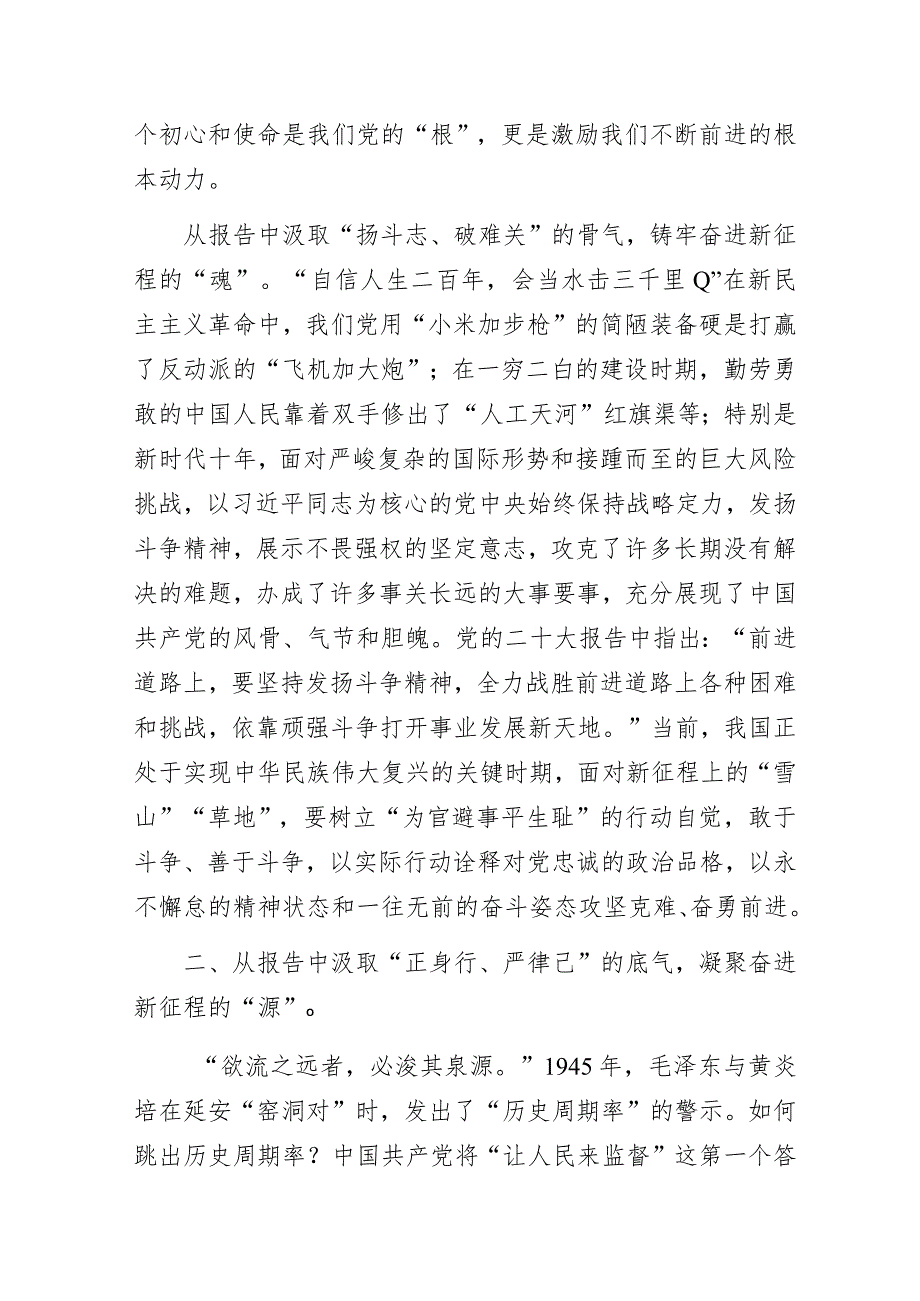 个初心和使命是我们党的“根”，更是激励我们不断前进的根
本动力。
从报告中汲取“扬斗志、破难关”的骨气，铸牢奋进新征
程的“魂”。“自信人生二百年，会当水击三千里 Q”在新民
主主义革命中，我们党用“小米加步枪”的简陋装备硬是打赢
了反动派的“飞机加大炮”；在一穷二白的建设时期，勤劳勇
敢的中国人民靠着双手修出了“人工天河”红旗渠等；特别是
新时代十年，面对严峻复杂的国际形势和接踵而至的巨大风险
挑战，以习近平同志为核心的党中央始终保持战略定力，发扬
斗争精神，展示不畏强权的坚定意志，攻克了许多长期没有解
决的难题，办成了许多事关长远的大事要事，充分展现了中国
共产党的风骨、气节和胆魄。党的二十大报告中指出：“前进
道路上，要坚持发扬斗争精神，全力战胜前进道路上各种困难
和挑战，依靠顽强斗争打开事业发展新天地。”当前，我国正
处于实现中华民族伟大复兴的关键时期，面对新征程上的“雪
山”“草地”，要树立“为官避事平生耻”的行动自觉，敢于
斗争、善于斗争，以实际行动诠释对党忠诚的政治品格，以永
不懈怠的精神状态和一往无前的奋斗姿态攻坚克难、奋勇前进。
二、从报告中汲取“正身行、严律己”的底气，凝聚奋进
新征程的“源”。
“欲流之远者，必浚其泉源。”1945 年，毛泽东与黄炎
培在延安“窑洞对”时，发出了“历史周期率”的警示。如何
跳出历史周期率？中国共产党将“让人民来监督”这第一个答